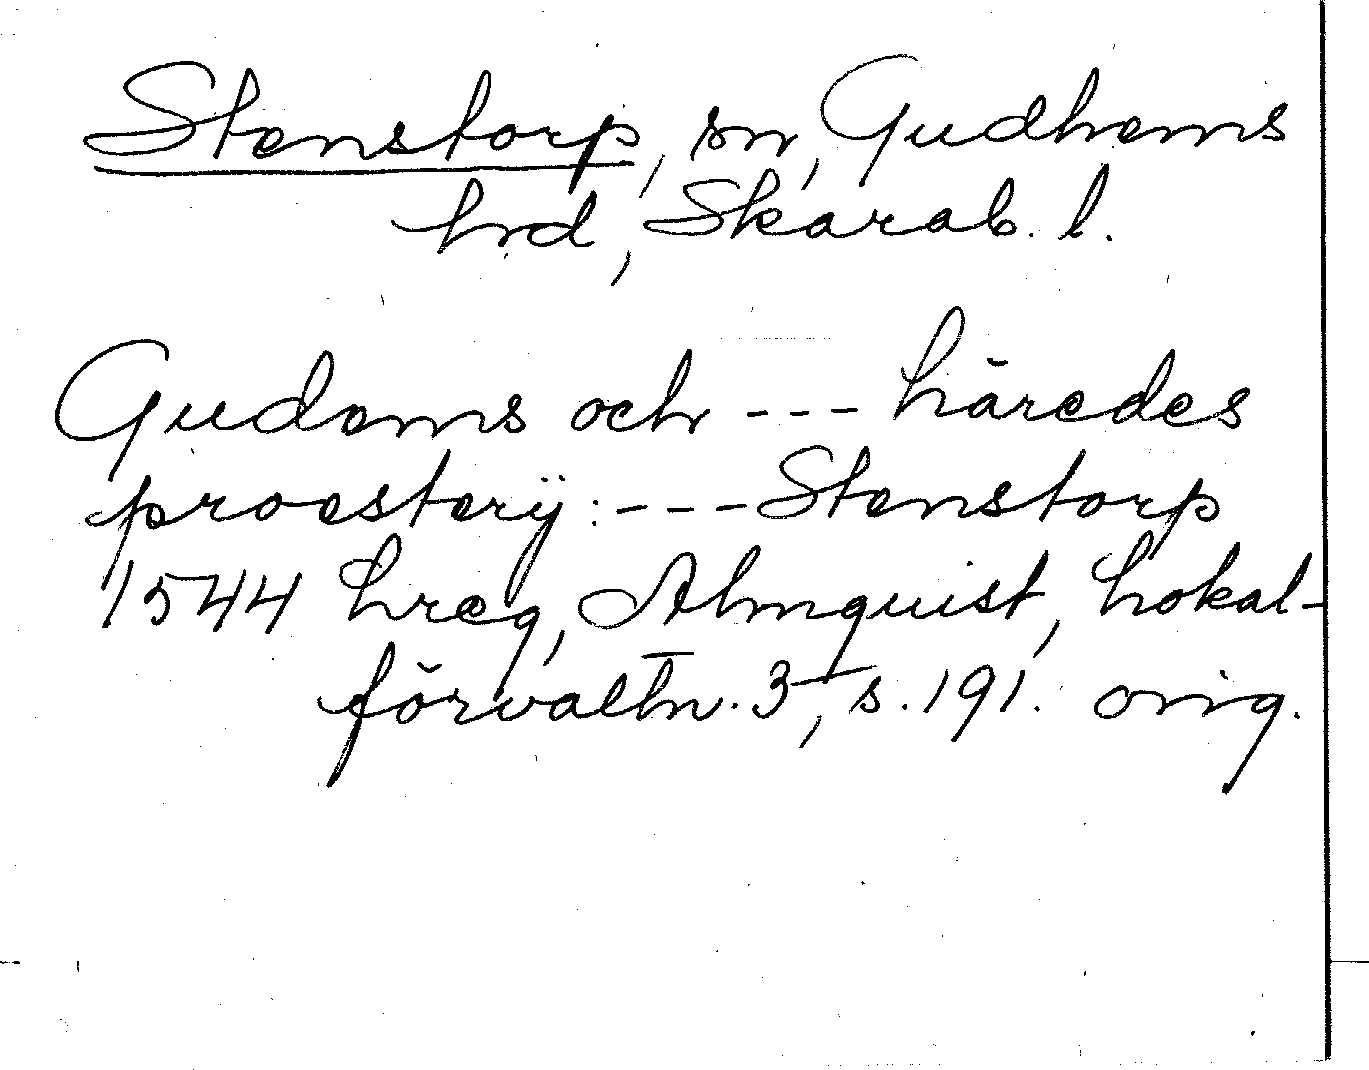 Stenstorp, sn, Gudhems
hd, Skarab. l.
Gudems och --- häredes
proesterÿ: --- Stenstorp
1544 hreg, Almquist, Lokal-
förvaltn. 3, s. 191. orig.